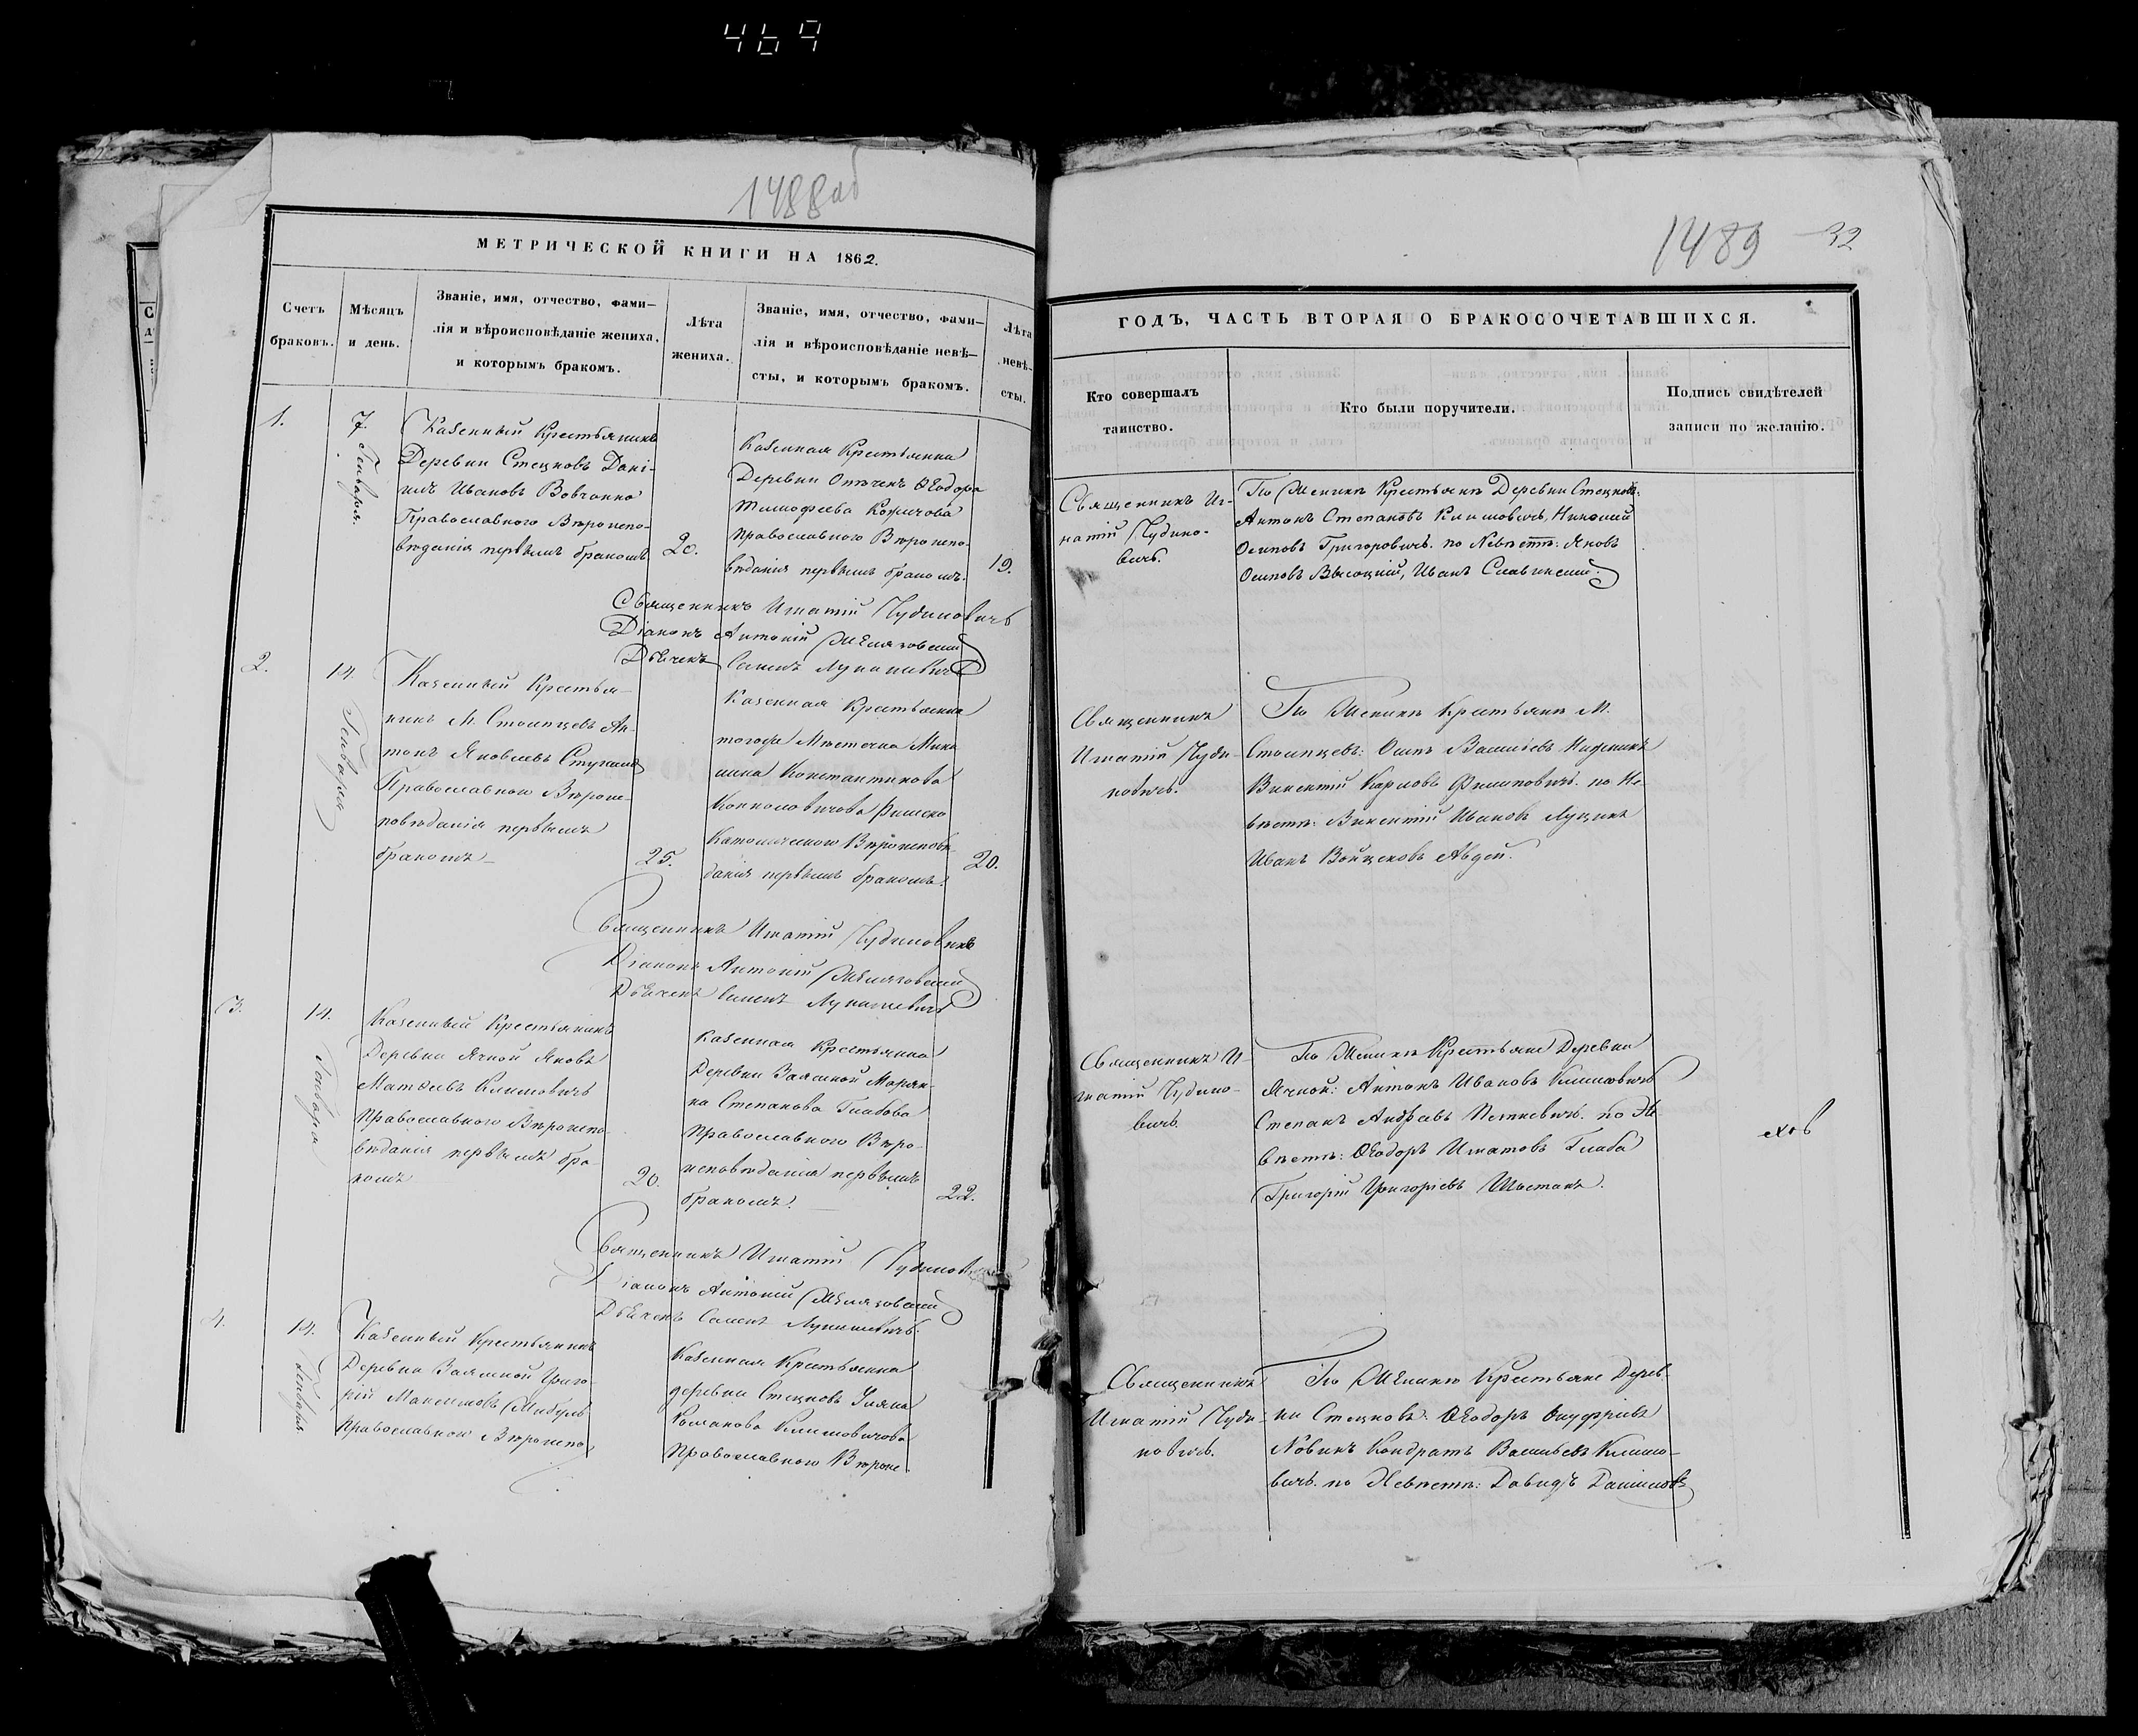 469
1488об
МЕТРИЧЕСКОЙ КНИГИ НА 1862.
Счетъ браковъ.
Мѣсяцъ и день.
Званіе, имя, отчество, фами-
лія и вѣроисповѣданіе жениха,
и которымъ бракомъ.
Лѣта
жениха.
Званіе, имя, отчество, фами-
лія и вѣроисповѣданіе невѣ-
сты, и которымъ бракомъ.
Лѣта
невѣ-
сты.
1.
7. Генваря.
Казенный Крестьянинъ
Деревни Стецковъ Дані-
илъ Ивановъ
Православнаго Вѣроиспо-
вѣданія первымъ бракомъ
20.
Казенная Крестьянка
Деревни Ѳеодора
Тимофеева
Православнаго Вѣроиспо-
вѣданія первымъ бракомъ.
19.
Священникъ Игнатій Чудиновичъ
Діаконъ Антоній
Дьячекъ
2.
14. Генваря
Казенный Крестья-
нинъ М. Столпцевъ Ан-
тонъ Яковлевъ
Православнаго Вѣроис-
повѣданія первымъ
бракомъ
25.
Казенная Крестьянка
тогоже Мѣстечка
Константинова
Римско
Католическаго Вѣроисповѣ-
данія первымъ бракомъ.
20.
Священникъ Игнатій Чудиновичъ
Діаконъ Антоній
Дьячекъ
3.
14. Генваря
Казенный Крестьянинъ
Деревни Ячной Яковъ
Матѳеевъ Климовичъ
Православнаго Вѣроиспо-
вѣданія первымъ бра-
комъ
20.
Казенная Крестьянка
Деревни Марьян-
на Степанова Глабова
Православнаго Вѣро-
исповѣданія первымъ
бракомъ.
22.
Священникъ Игнатій
Діаконъ Антоній
Дьячекъ
4.
14. Генваря.
Казенный Крестьянинъ
Деревни Григо-
рій Максимовъ
Православнаго Вѣроиспо
Казенная Крестьянка
деревни Стецковъ Уляна
Романова Климовичова
Православнаго Вѣроис
1489
32
ГОДЪ, ЧАСТЬ ВТОРАЯ О БРАКОСОЧЕТАВШИХСЯ.
Кто совершалъ
таинство.
Кто были поручители.
Подпись свидѣтелей
записи по желанію.
Священникъ Иг-
натій Чудино-
вичъ.
По Женихѣ Крестьяне Деревни Стецковъ:
Антонъ Степановъ Климовичъ, Николай
Осиповъ Григоровичъ. по Невѣстѣ: Яковъ
Осиповъ Высоцкій, Иванъ Славинскій.
Священникъ
Игнатій Чуди-
новичъ.
По Женихѣ Крестьяне М.
Столпцевъ: Осипъ Васильевъ
Викентій Карловъ Филиповичъ. по Не-
вѣстѣ: Викентій Ивановъ Луцикъ
Иванъ Войцеховъ Авдей.
Священникъ И-
гнатій Чудино-
вичъ.
По Женихѣ Крестьяне Деревни
Ячной: Антонъ Ивановъ Климовичъ
Степанъ Андреевъ Петкевичъ. по Не
вѣстѣ: Ѳеодоръ Игнатовъ Глаба
Григорій Григорьевъ Шестакъ.
Священникъ
Игнатій Чуди-
новичъ.
По Женихѣ Крестьяне Дерев-
ни Стецковъ: Ѳеодоръ Онуфріевъ
Новикъ Кондратъ Васильевъ Климо-
вичъ. по Невѣстѣ: Давидъ Даниловъ